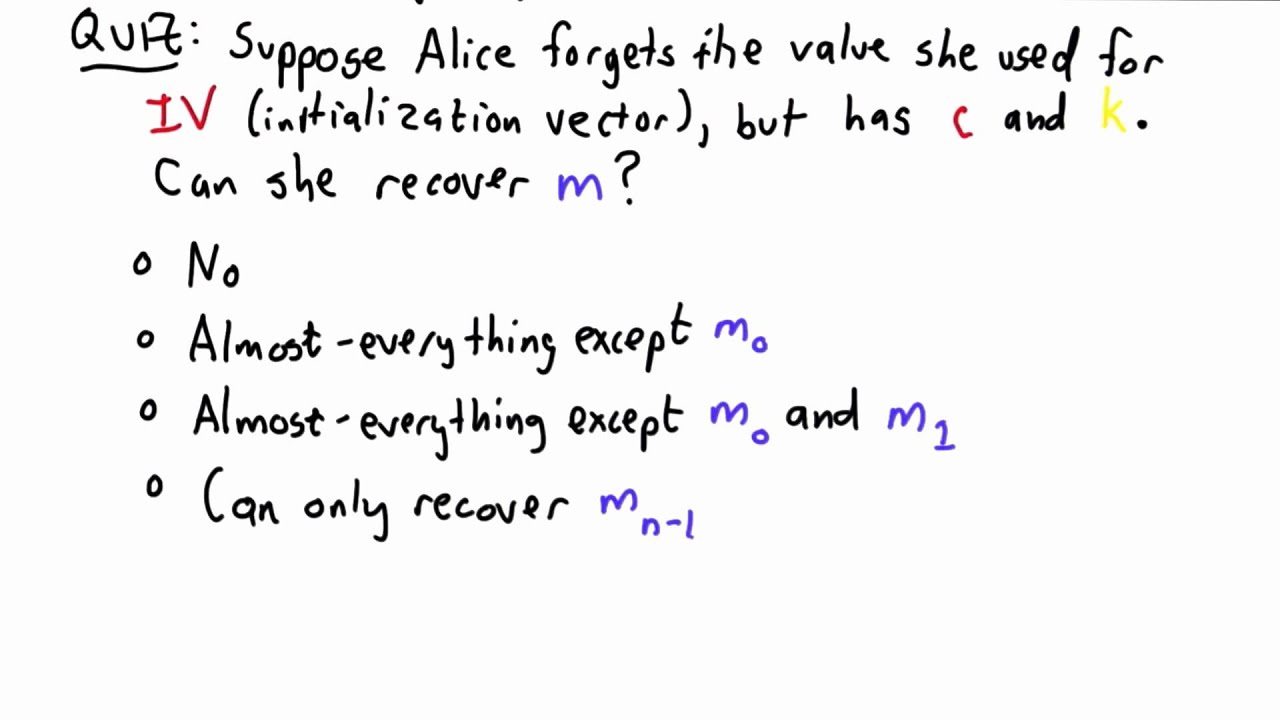 QUIZ: Suppose Alice forgets the value she used for
IV (initialization vector), but has c and k.
Can she recover m?
No
Almost-everything except m₀
Almost-everything except m₀ and m₁
Can only recover mₙ₋₁